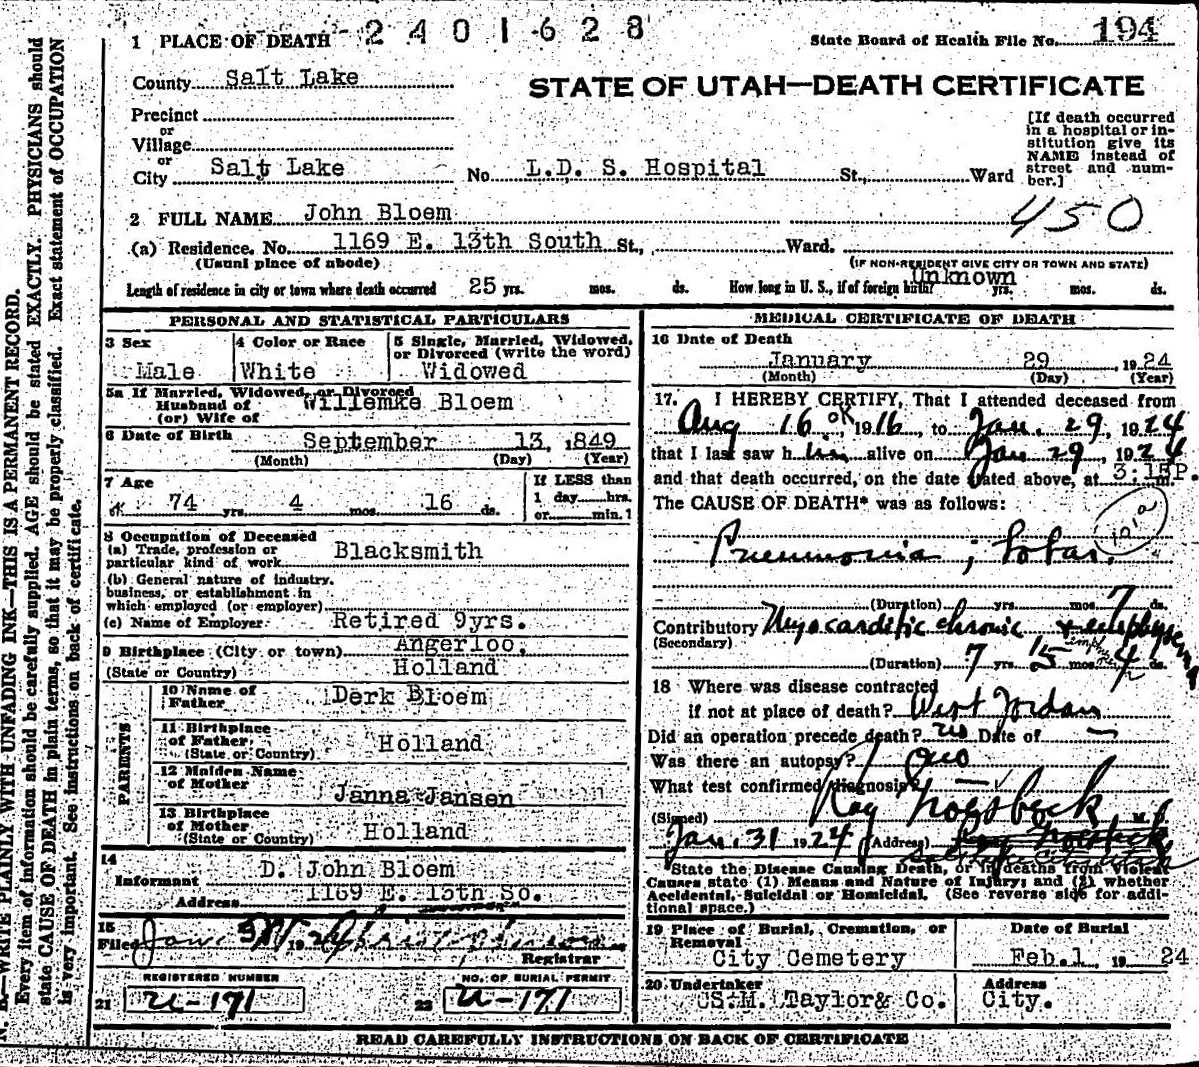 2401628
1 PLACE OF DEATH
State Board of Health File No. 194
County Salt Lake
STATE OF UTAH—DEATH CERTIFICATE
Precinct
or
Village
or
City Salt Lake No. L.D. S. Hospital St., Ward
[If death occurred
in a hospital or in-
stitution give its
NAME instead of
street and num-
ber.]
2 FULL NAME John Bloem
450
(a) Residence. No. 1169 E. 13th South St., Ward.
(Usual place of abode)
(IF NON-RESIDENT GIVE CITY OR TOWN AND STATE)
Length of residence in city or town where death occurred 25 yrs. mos. ds. How long in U. S., if of foreign birth? Unknown yrs. mos. ds.
PERSONAL AND STATISTICAL PARTICULARS
3 Sex
Male
4 Color or Race
White
5 Single, Married, Widowed,
or Divorced (write the word)
Widowed
5a If Married, Widowed, or Divorced
Husband of
(or) Wife of
Willemke Bloem
6 Date of Birth September 13, 1849
(Month) (Day) (Year)
7 Age
OK 74 yrs. 4 mos. 16 ds.
If LESS than
1 day hrs.
or min.?
8 Occupation of Deceased
(a) Trade, profession or
particular kind of work Blacksmith
(b) General nature of industry,
business, or establishment in
which employed (or employer)
(c) Name of Employer Retired 9yrs.
9 Birthplace (City or town) Angerloo,
(State or Country) Holland
PARENTS
10 Name of
Father Derk Bloem
11 Birthplace
of Father
(State or Country) Holland
12 Maiden Name
of Mother
Janna Jansen
13 Birthplace
of Mother
(State or Country) Holland
14
Informant D. John Bloem
Address 1169 E. 13th So.
15
Filed Jan 1924
Registrar
REGISTERED NUMBER
21 U-171
NO. OF BURIAL PERMIT
22 U-171
MEDICAL CERTIFICATE OF DEATH
16 Date of Death
January 29 1924
(Month) (Day) (Year)
17. I HEREBY CERTIFY, That I attended deceased from
Aug 16 OK, 1916, to Jan. 29, 1924
that I last saw him alive on Jan 29, 1924
and that death occurred, on the date stated above, at 3:15P.m.
The CAUSE OF DEATH* was as follows:
101a
Pneumonia, lobar.
(Duration) yrs. mos. 7 ds.
Contributory Myocarditis chronic +
(Secondary)
(Duration) 7 yrs 5 mos. 4 ds.
18 Where was disease contracted
if not at place of death? West Jordan
Did an operation precede death? no Date of —
Was there an autopsy? no
What test confirmed diagnosis? —
(Signed) Roy Groesbeck M. D.
Jan. 31 1924 (Address)
State the Disease Causing Death, or in deaths from Violent
Causes state (1) Means and Nature of Injury; and (2) whether
Accidental, Suicidal or Homicidal. (See reverse side for addi-
tional space.)
19 Place of Burial, Cremation, or
Removal
City Cemetery
Date of Burial
Feb. 1 1924
20 Undertaker
S.M. Taylor & Co.
Address
City.
READ CAREFULLY INSTRUCTIONS ON BACK OF CERTIFICATE
N. B.—WRITE PLAINLY WITH UNFADING INK—THIS IS A PERMANENT RECORD.
Every item of information should be carefully supplied. AGE should be stated EXACTLY. PHYSICIANS should
state CAUSE OF DEATH in plain terms, so that it may be properly classified. Exact statement of OCCUPATION
is very important. See instructions on back of certificate.